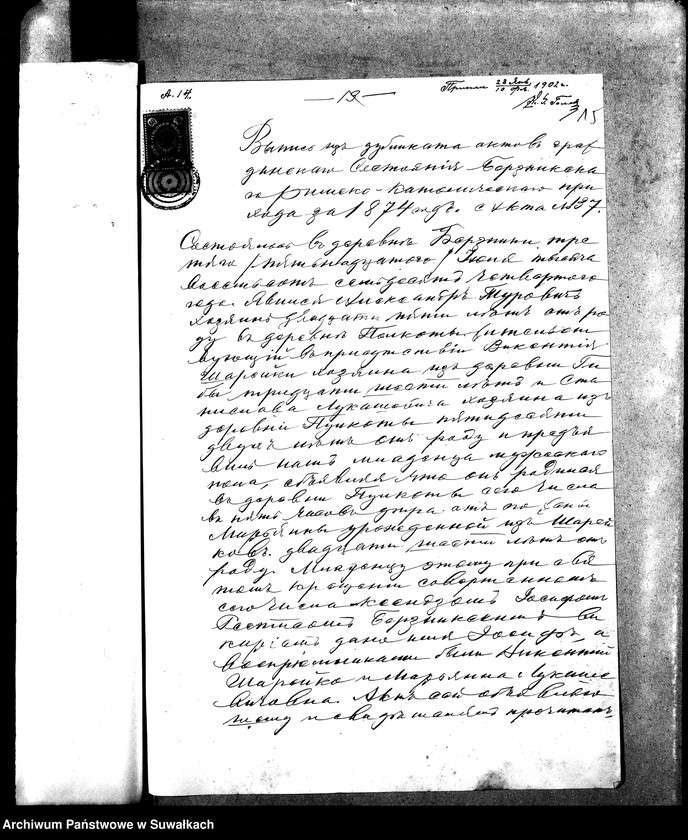 А. 14.
— 13 —
23 Янв.
10 Фев. 1902 г.
Выпись изъ дубликата актовъ граж
данскаго Состоянія Бержникска
го Римско-Католическаго при
хода за 1874 годъ. Акта № 197.
Состоялось въ деревнѣ Бержники, тре
тяго /пятьнадцатого/ Іюня тысяча
восемьсотъ семьдесятъ четвертого
года. Явился Александръ Туровичъ
хозяинъ двадцати пяти лѣтъ отъ ро
ду въ деревнѣ Пункоты жительст
вующій въ присудствіи Викентія
Шаройки хозяина изъ деревни Ги
бы тридцати шести лѣтъ и Ста
нислава Лукашевича хозяина изъ
деревни Пункоты пятидесяти
двухъ лѣтъ отъ роду и предъя
вилъ намъ младенца мужескаго
пола, объявляя что онъ родился
въ деревни Пункоты сего числа
въ пять часовъ утра отъ его жены
Марьянны урожденной изъ Шарой
ковъ двадцати шести лѣтъ отъ
роду. Младенцу этому при свя
томъ крещеніи совершенномъ
сего числа Ксендзомъ Іосифомъ
Бержникскимъ Ви
каріемъ дано имя Іосифъ, а
воспріемниками были Викентій
Шаройко и Марьянна Лукаше
вичовна. Актъ сей объявляю
щему и свидѣтелямъ прочитанъ,
Archiwum Państwowe w Suwałkach